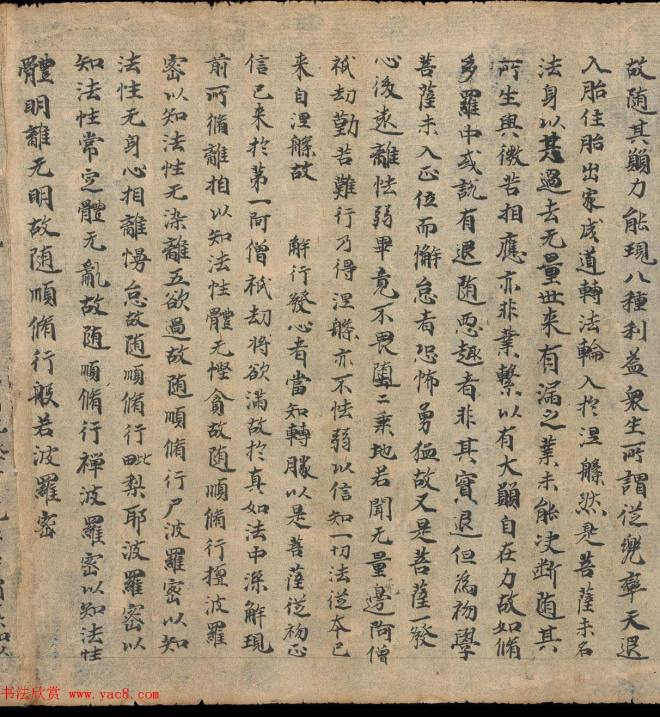 故随其願力能現八種利益衆生所謂從兜率天退
入胎住胎出家成道轉法輪入於涅槃然是菩薩未名
法身以其過去无量世来有漏之業未能决斷随其
所生與微苦相應亦非業繫以有大願自在力故如脩
多羅中或説有退随恶趣者非其實退但為初學
菩薩未入正位而懈怠者恐怖勇猛故又是菩薩一發
心後遠離怯弱畢竟不畏墮二乗地若聞无量邊阿僧
祇劫勤苦難行乃得涅槃亦不怯弱以信知一切法從本已
来自涅槃故 解行發心者當知轉勝以是菩薩從初正
信已来於第一阿僧祇劫将欲滿故於真如法中深解現
前所脩離相以知法性體无慳貪故随順脩行檀波羅
密以知法性无染離五欲過故随順脩行尸波羅密以知
法性无身心相離㥬怠故随順脩行毗梨耶波羅密以
知法性常定體无亂故随順脩行禅波羅密以知法性
體明離无明故随順脩行般若波羅密
书法欣赏 www.yac8.com